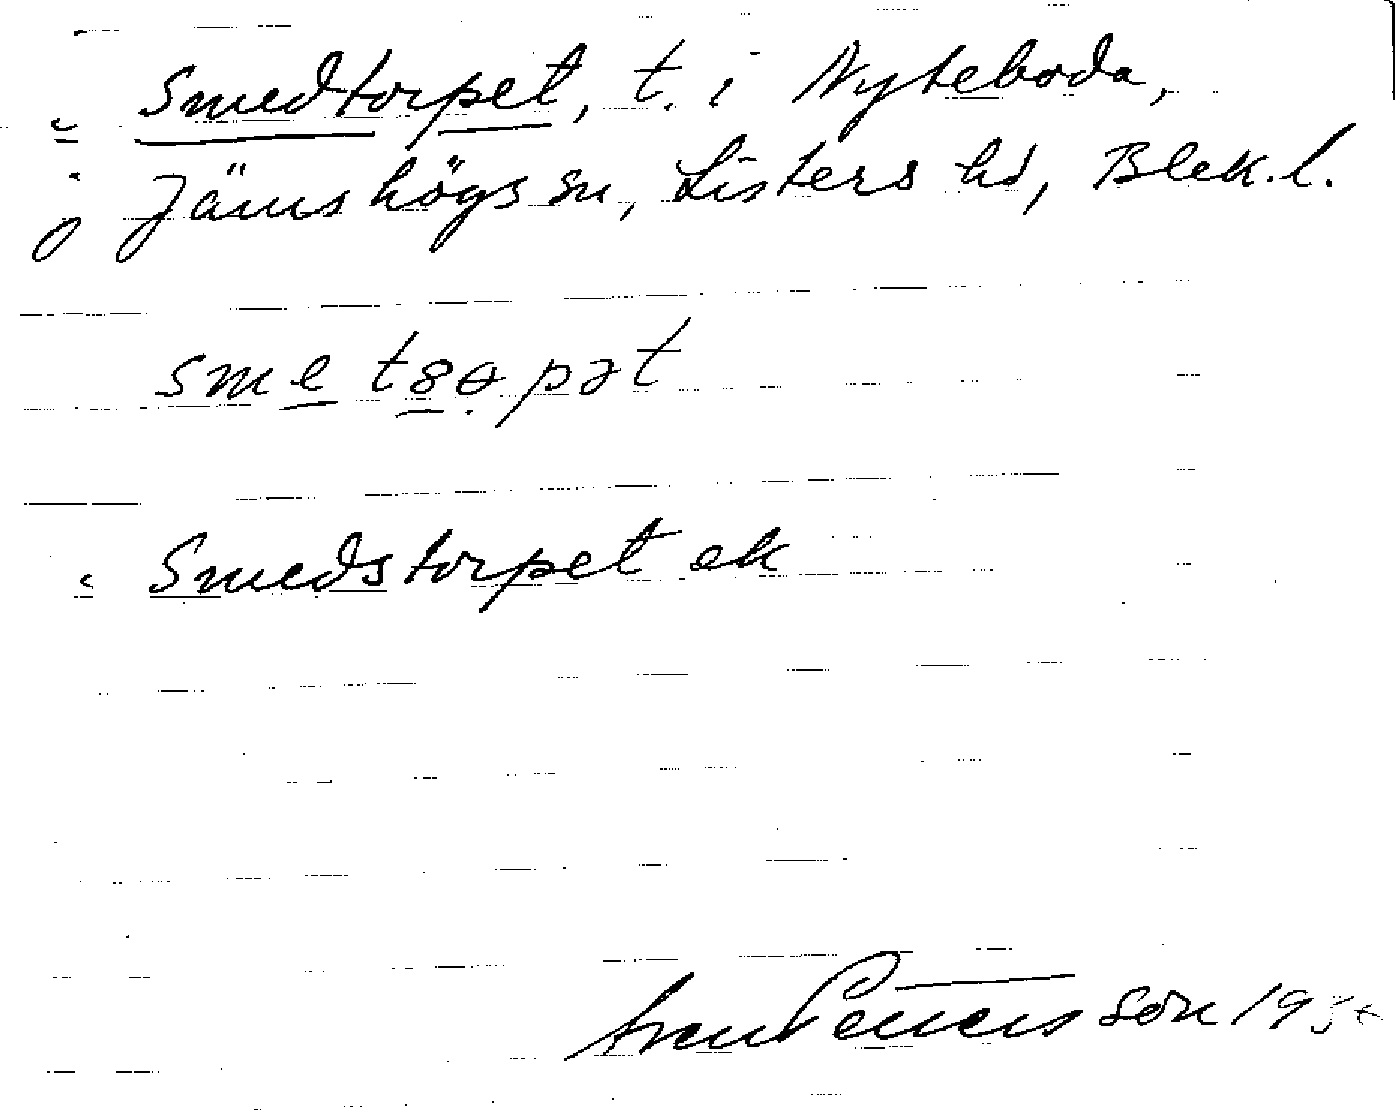 Smedtorpet, t. i Nyteboda,
Jämshögs sn, Listers hd, Blek. l.
Smedstorpet ek
Pettersson 19